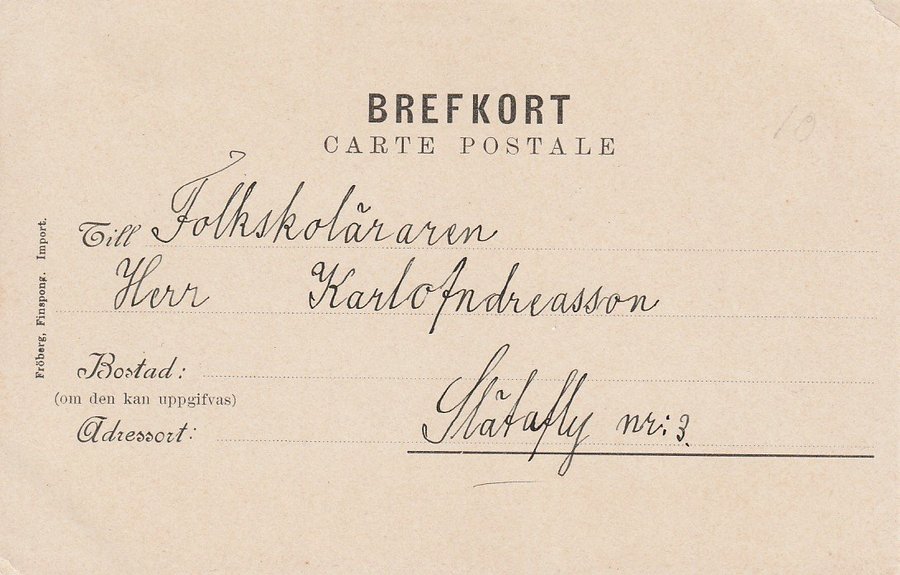 BREFKORT
CARTE POSTALE
10
Till Folkskoläraren
Herr Karl Andreasson
Bostad:
(om den kan uppgifvas)
Adressort: Slätafly nr: 3.
Fröberg, Finspong. Import.